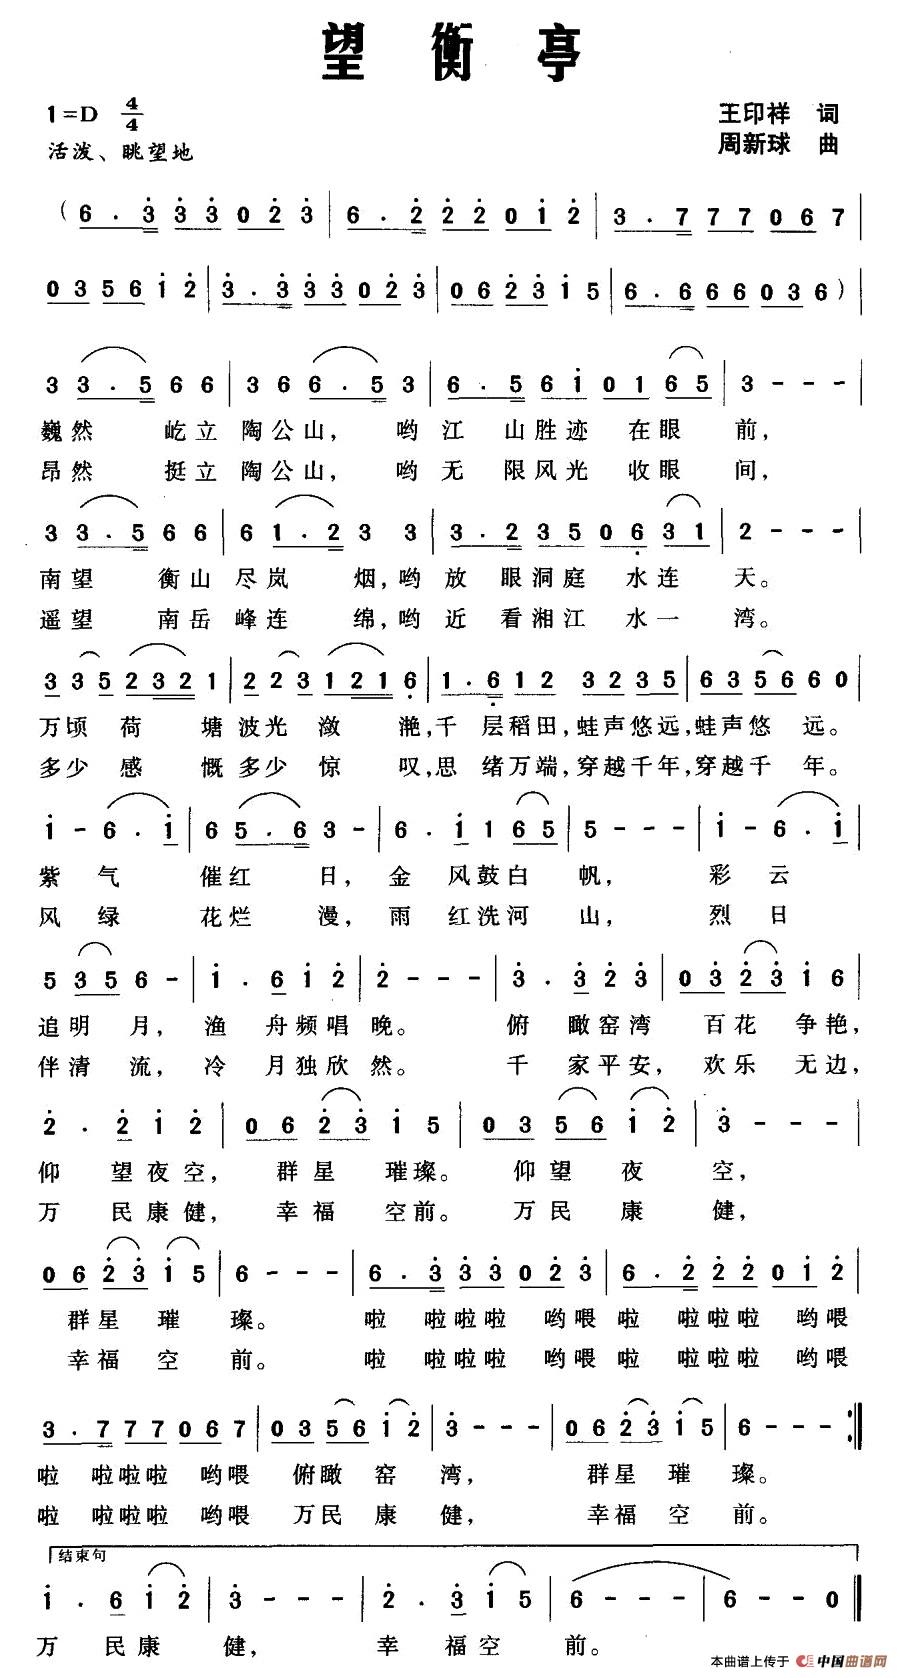 望衡亭
1=D 4/4
王印祥 词
活泼、眺望地
周新球 曲
(6 . 3 3 3 0 2 3 | 6 . 2 2 2 0 1 2 | 3 . 7 7 7 0 6 7 |
0 3 5 6 1 2 | 3 . 3 3 3 0 2 3 | 0 6 2 3 1 5 | 6 . 6 6 6 0 3 6 ) |
3 3 . 5 6 6 | 3 6 6 . 5 3 | 6 . 5 6 1 0 1 6 5 | 3 - - - |
巍然 屹立 陶公山, 哟江 山胜迹 在眼 前,
昂然 挺立 陶公山, 哟无 限风光 收眼 间,
3 3 . 5 6 6 | 6 1 . 2 3 3 | 3 . 2 3 5 0 6 3 1 | 2 - - - |
南望 衡山 尽岚 烟,哟 放 眼洞庭 水连 天。
遥望 南岳 峰连 绵,哟 近 看湘江 水一 湾。
3 3 5 2 3 2 1 | 2 2 3 1 2 1 6 | 1 . 6 1 2 3 2 3 5 | 6 3 5 6 6 0 |
万顷 荷 塘 波光 潋 滟,千 层稻田,蛙声悠远,蛙声悠 远。
多少 感 慨 多少 惊 叹,思 绪万端,穿越千年,穿越千 年。
1 - 6 . 1 | 6 5 . 6 3 - | 6 . 1 1 6 5 | 5 - - - | 1 - 6 . 1 |
紫 气 催红 日, 金 风鼓白 帆, 彩 云
风 绿 花烂 漫, 雨 红洗河 山, 烈 日
5 3 5 6 - | 1 . 6 1 2 | 2 - - - | 3 . 3 2 3 | 0 3 2 3 1 6 |
追明 月, 渔 舟频唱 晚。 俯 瞰窑湾 百花 争艳,
伴清 流, 冷 月独欣 然。 千 家平安, 欢乐 无边,
2 . 2 1 2 | 0 6 2 3 1 5 | 0 3 5 6 1 2 | 3 - - - |
仰 望夜空, 群星 璀璨。 仰望 夜 空,
万 民康健, 幸福 空前。 万民 康 健,
0 6 2 3 1 5 | 6 - - - | 6 . 3 3 3 0 2 3 | 6 . 2 2 2 0 1 2 |
群星 璀 璨。 啦 啦啦啦 哟喂 啦 啦啦啦 哟喂
幸福 空 前。 啦 啦啦啦 哟喂 啦 啦啦啦 哟喂
3 . 7 7 7 0 6 7 | 0 3 5 6 1 2 | 3 - - - | 0 6 2 3 1 5 | 6 - - - :|
啦 啦啦啦 哟喂 俯瞰 窑 湾, 群星 璀 璨。
啦 啦啦啦 哟喂 万民 康 健, 幸福 空 前。
结束句
1 . 6 1 2 | 3 - - - | 2 . 3 1 5 | 6 - - - | 6 - - 0 |
万 民康 健, 幸 福空 前。
本曲谱上传于 中国曲谱网